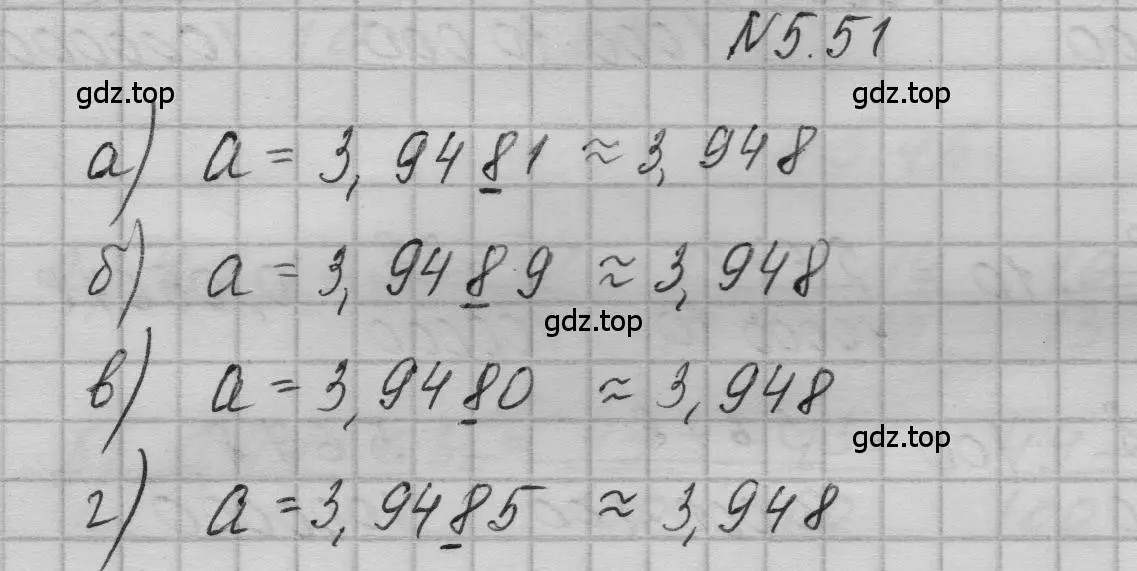 N 5.51
gdz.top gdz.top
а) a = 3,9481 ≈ 3,948
б) a = 3,9489 ≈ 3,948
gdz.top
в) a = 3,9480 ≈ 3,948
gdz.top
г) a = 3,9485 ≈ 3,948